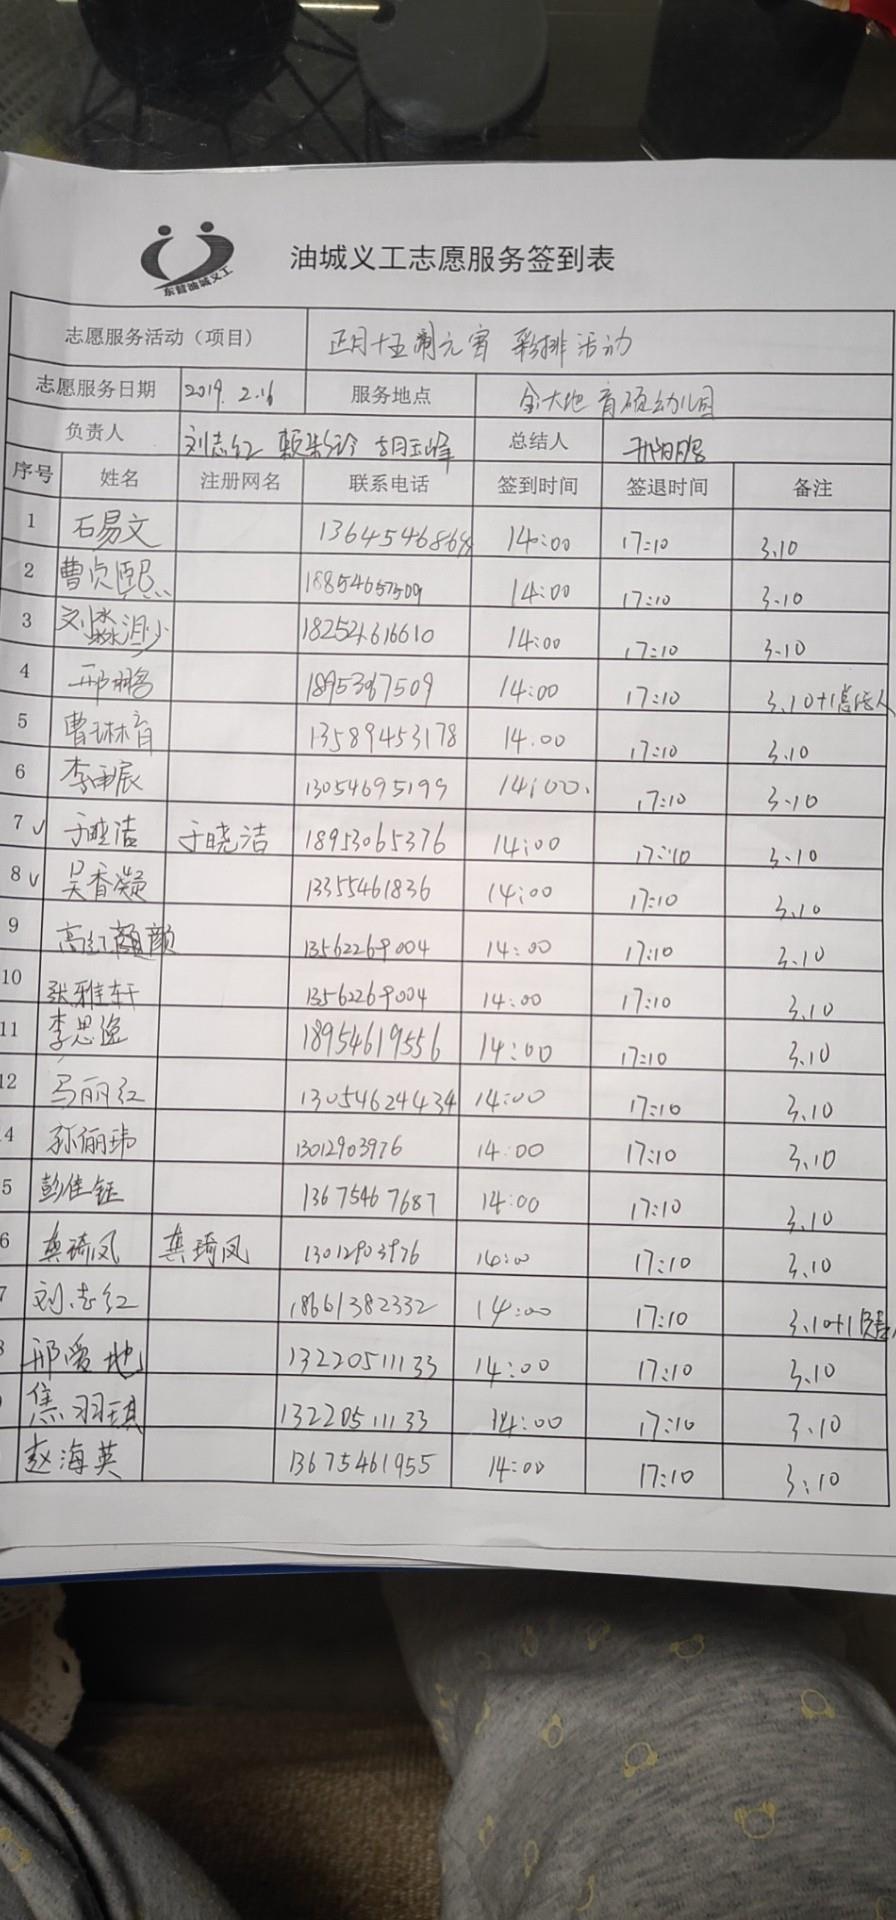 东营油城义工
油城义工志愿服务签到表
志愿服务活动（项目） 正月十五闹元宵 彩排活动
志愿服务日期 2019.2.16 服务地点 金大地育硕幼儿园
负责人 刘志红 胡玉峰 总结人 邢鹏
序号 姓名 注册网名 联系电话 签到时间 签退时间 备注
1 石易文 13645468684 14:00 17:10 3.10
2 曹贞熙 18854657509 14:00 17:10 3.10
3 18252616610 14:00 17:10 3.10
4 邢鹏 18953067509 14:00 17:10 3.10+1总结人
5 曹琳育 13589453178 14.00 17:10 3.10
6 13054695199 14:00. 17:10 3.10
7 ✓ 于晓洁 于晓洁 18953065376 14:00 17:10 3.10
8 ✓ 吴香凝 13355461836 14:00 17:10 3.10
9 高红颜 13562269004 14:00 17:10 3.10
10 张雅轩 13562269004 14:00 17:10 3.10
11 李思逸 18954619556 14:00 17:10 3.10
12 马丽红 13054624434 14:00 17:10 3.10
4 孙俪玮 13012903976 14:00 17:10 3.10
5 彭佳钰 13675467687 14:00 17:10 3.10
6 龚琦凤 龚琦凤 13012903976 14:00 17:10 3.10
7 刘志红 18661382332 14:00 17:10 3.10+1负责
8 邢爱地 13220511133 14:00 17:10 3.10
焦羽琪 13220511133 14:00 17:10 3.10
赵海英 13675461955 14:00 17:10 3:10